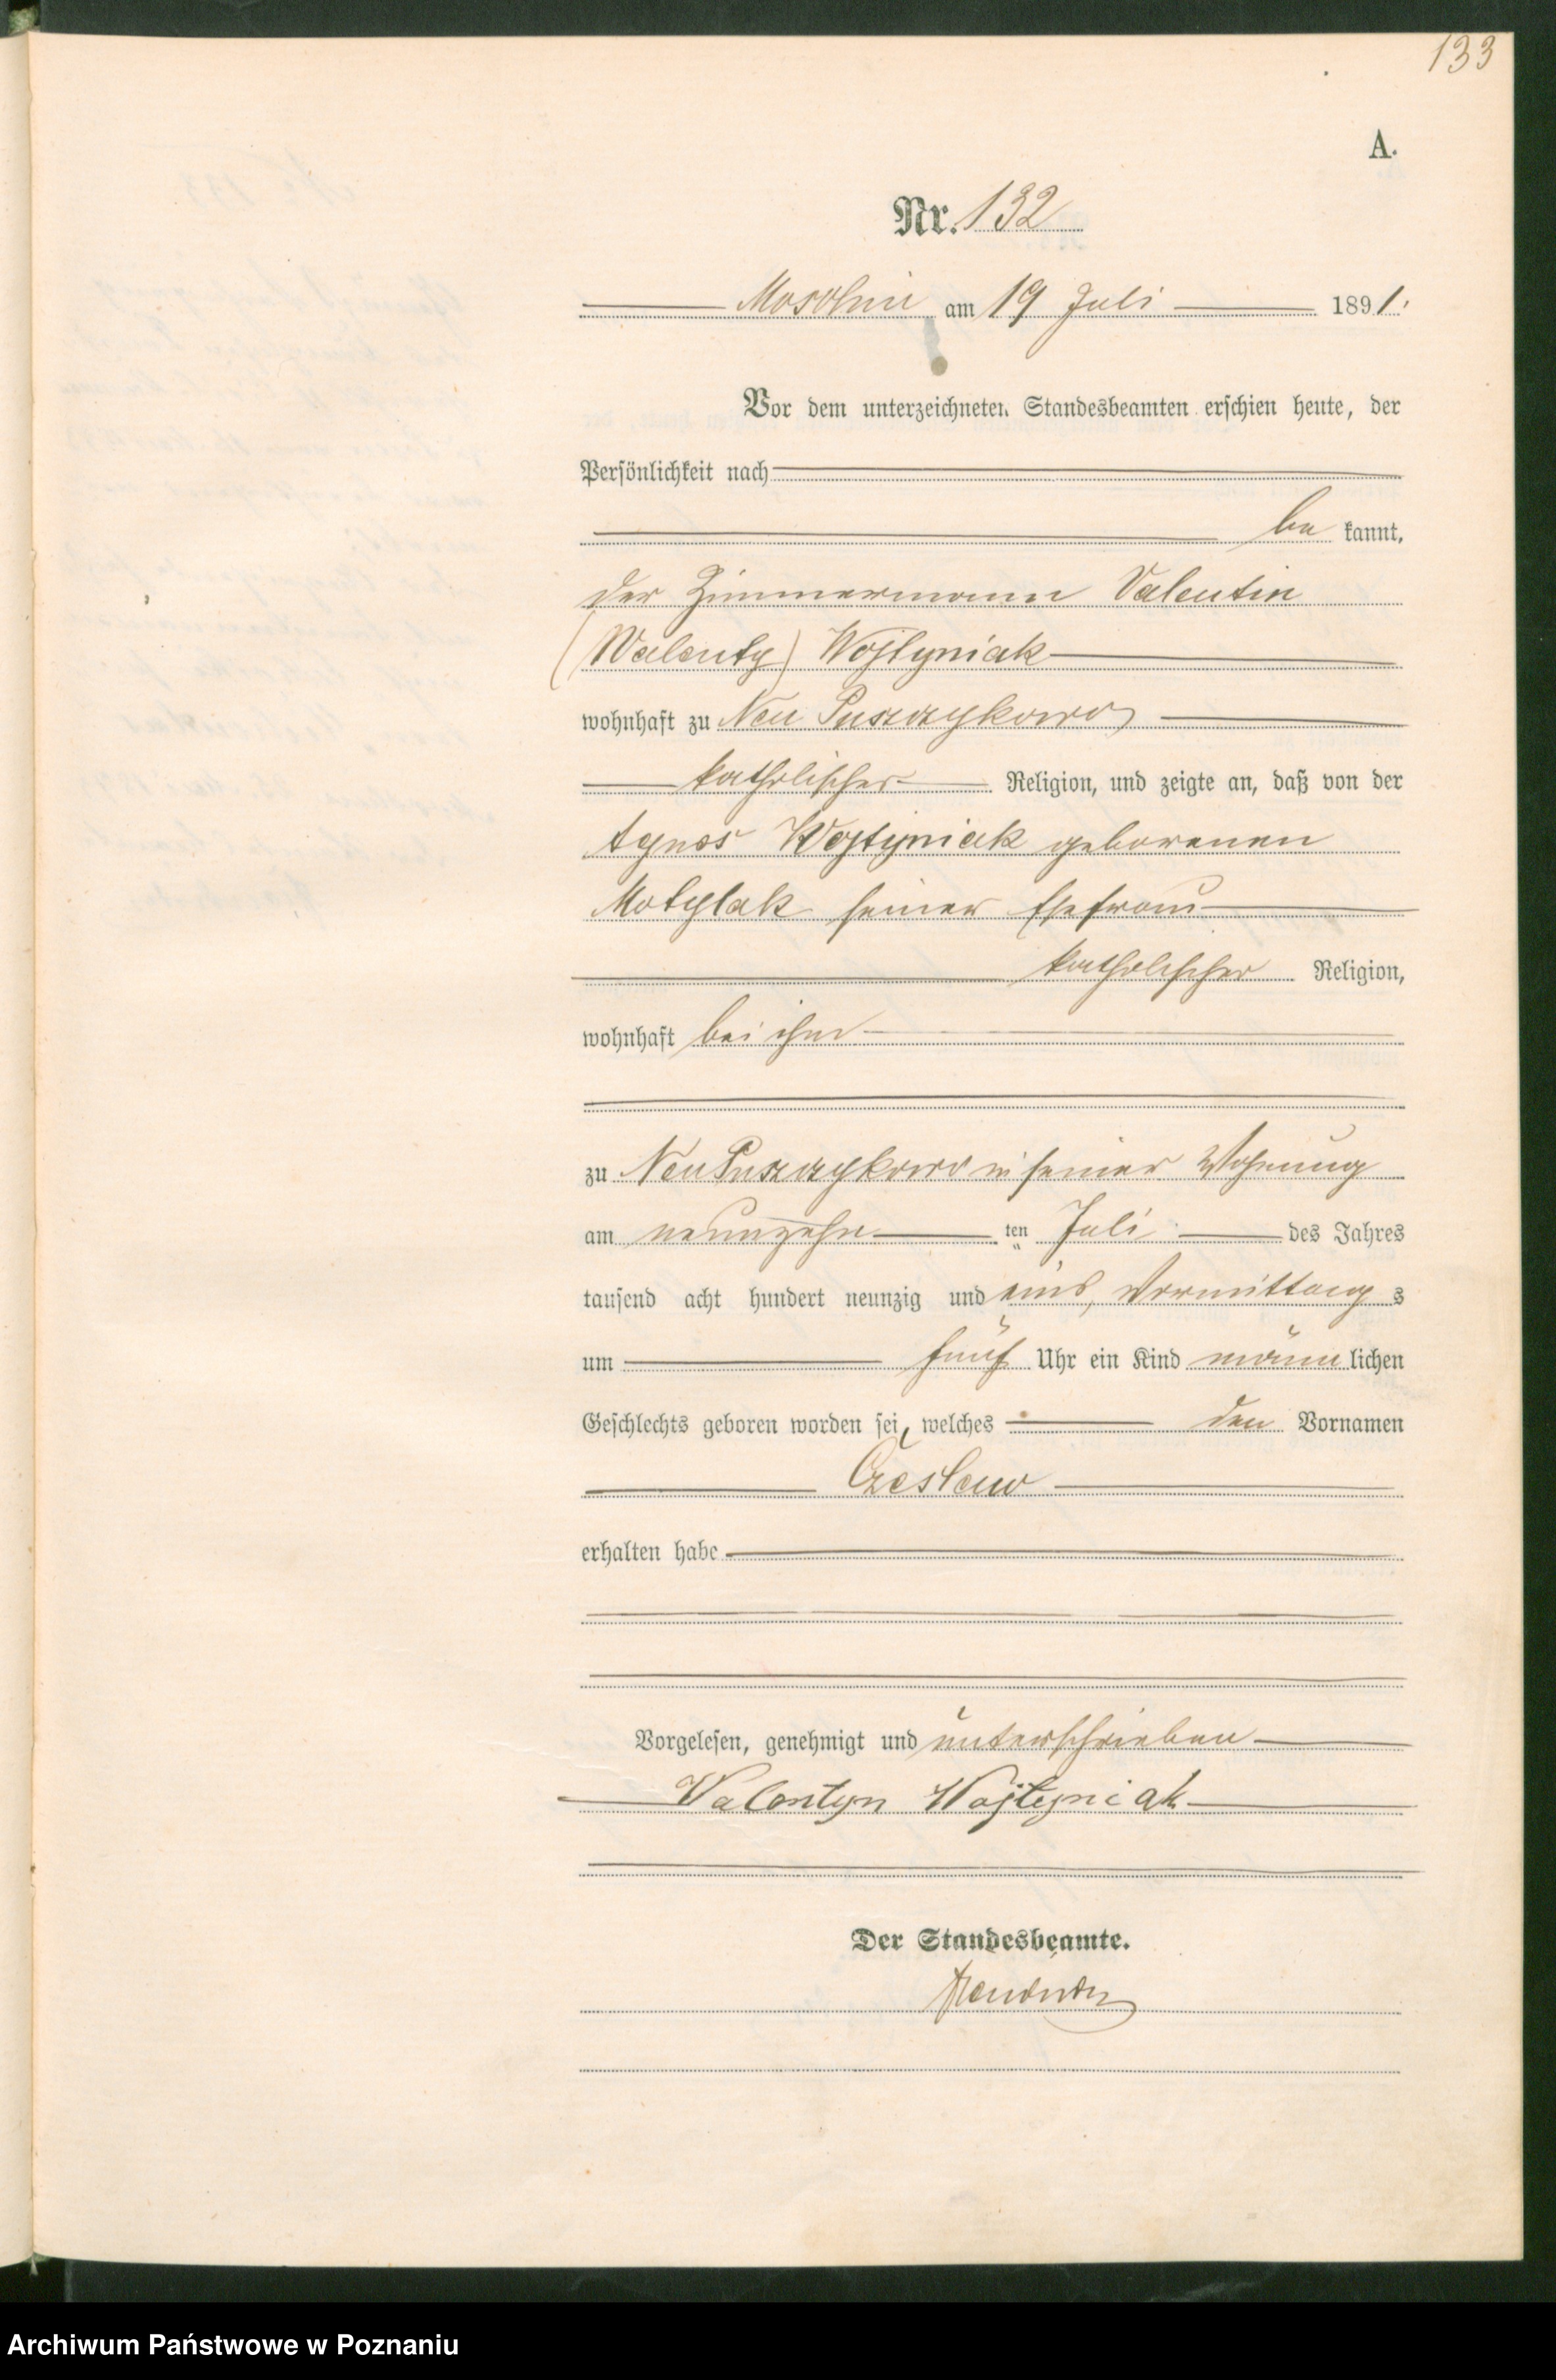 133
A.
Nr. 132
Moschin am 19 Juli 1891.
Vor dem unterzeichneten Standesbeamten erschien heute, der
Persönlichkeit nach
be kannt,
der Zimmermann Valentin
(Walenty) Wojtyniak
wohnhaft zu Neu Puszczykowo
katholischer Religion, und zeigte an, daß von der
Agnes Wojtyniak geborenen
Motylak seiner Ehefrau
katholischer Religion,
wohnhaft bei ihm
zu Neu Puszczykowo in seiner Wohnung
am neunzehn ten Juli des Jahres
tausend acht hundert neunzig und eins, Vormittag s
um fünf Uhr ein Kind männ lichen
Geschlechts geboren worden sei, welches den Vornamen
Czeslaw
erhalten habe
Vorgelesen, genehmigt und unterschrieben
Valentyn Wojtyniak
Der Standesbeamte.
Archiwum Państwowe w Poznaniu